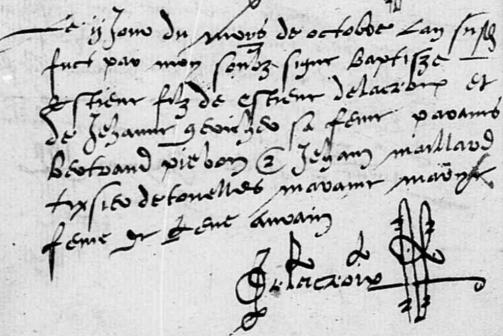 Le ij Jour du moys de octobre Lan susd
fuct par moy soubz signe baptisze
Estiene filz de estiene delacroix et
de Jehanne sa feme parains
bertrand piebon & Jehan maillard
tixsier de touelles maraine marye
feme de Rene auvain
Delacroix